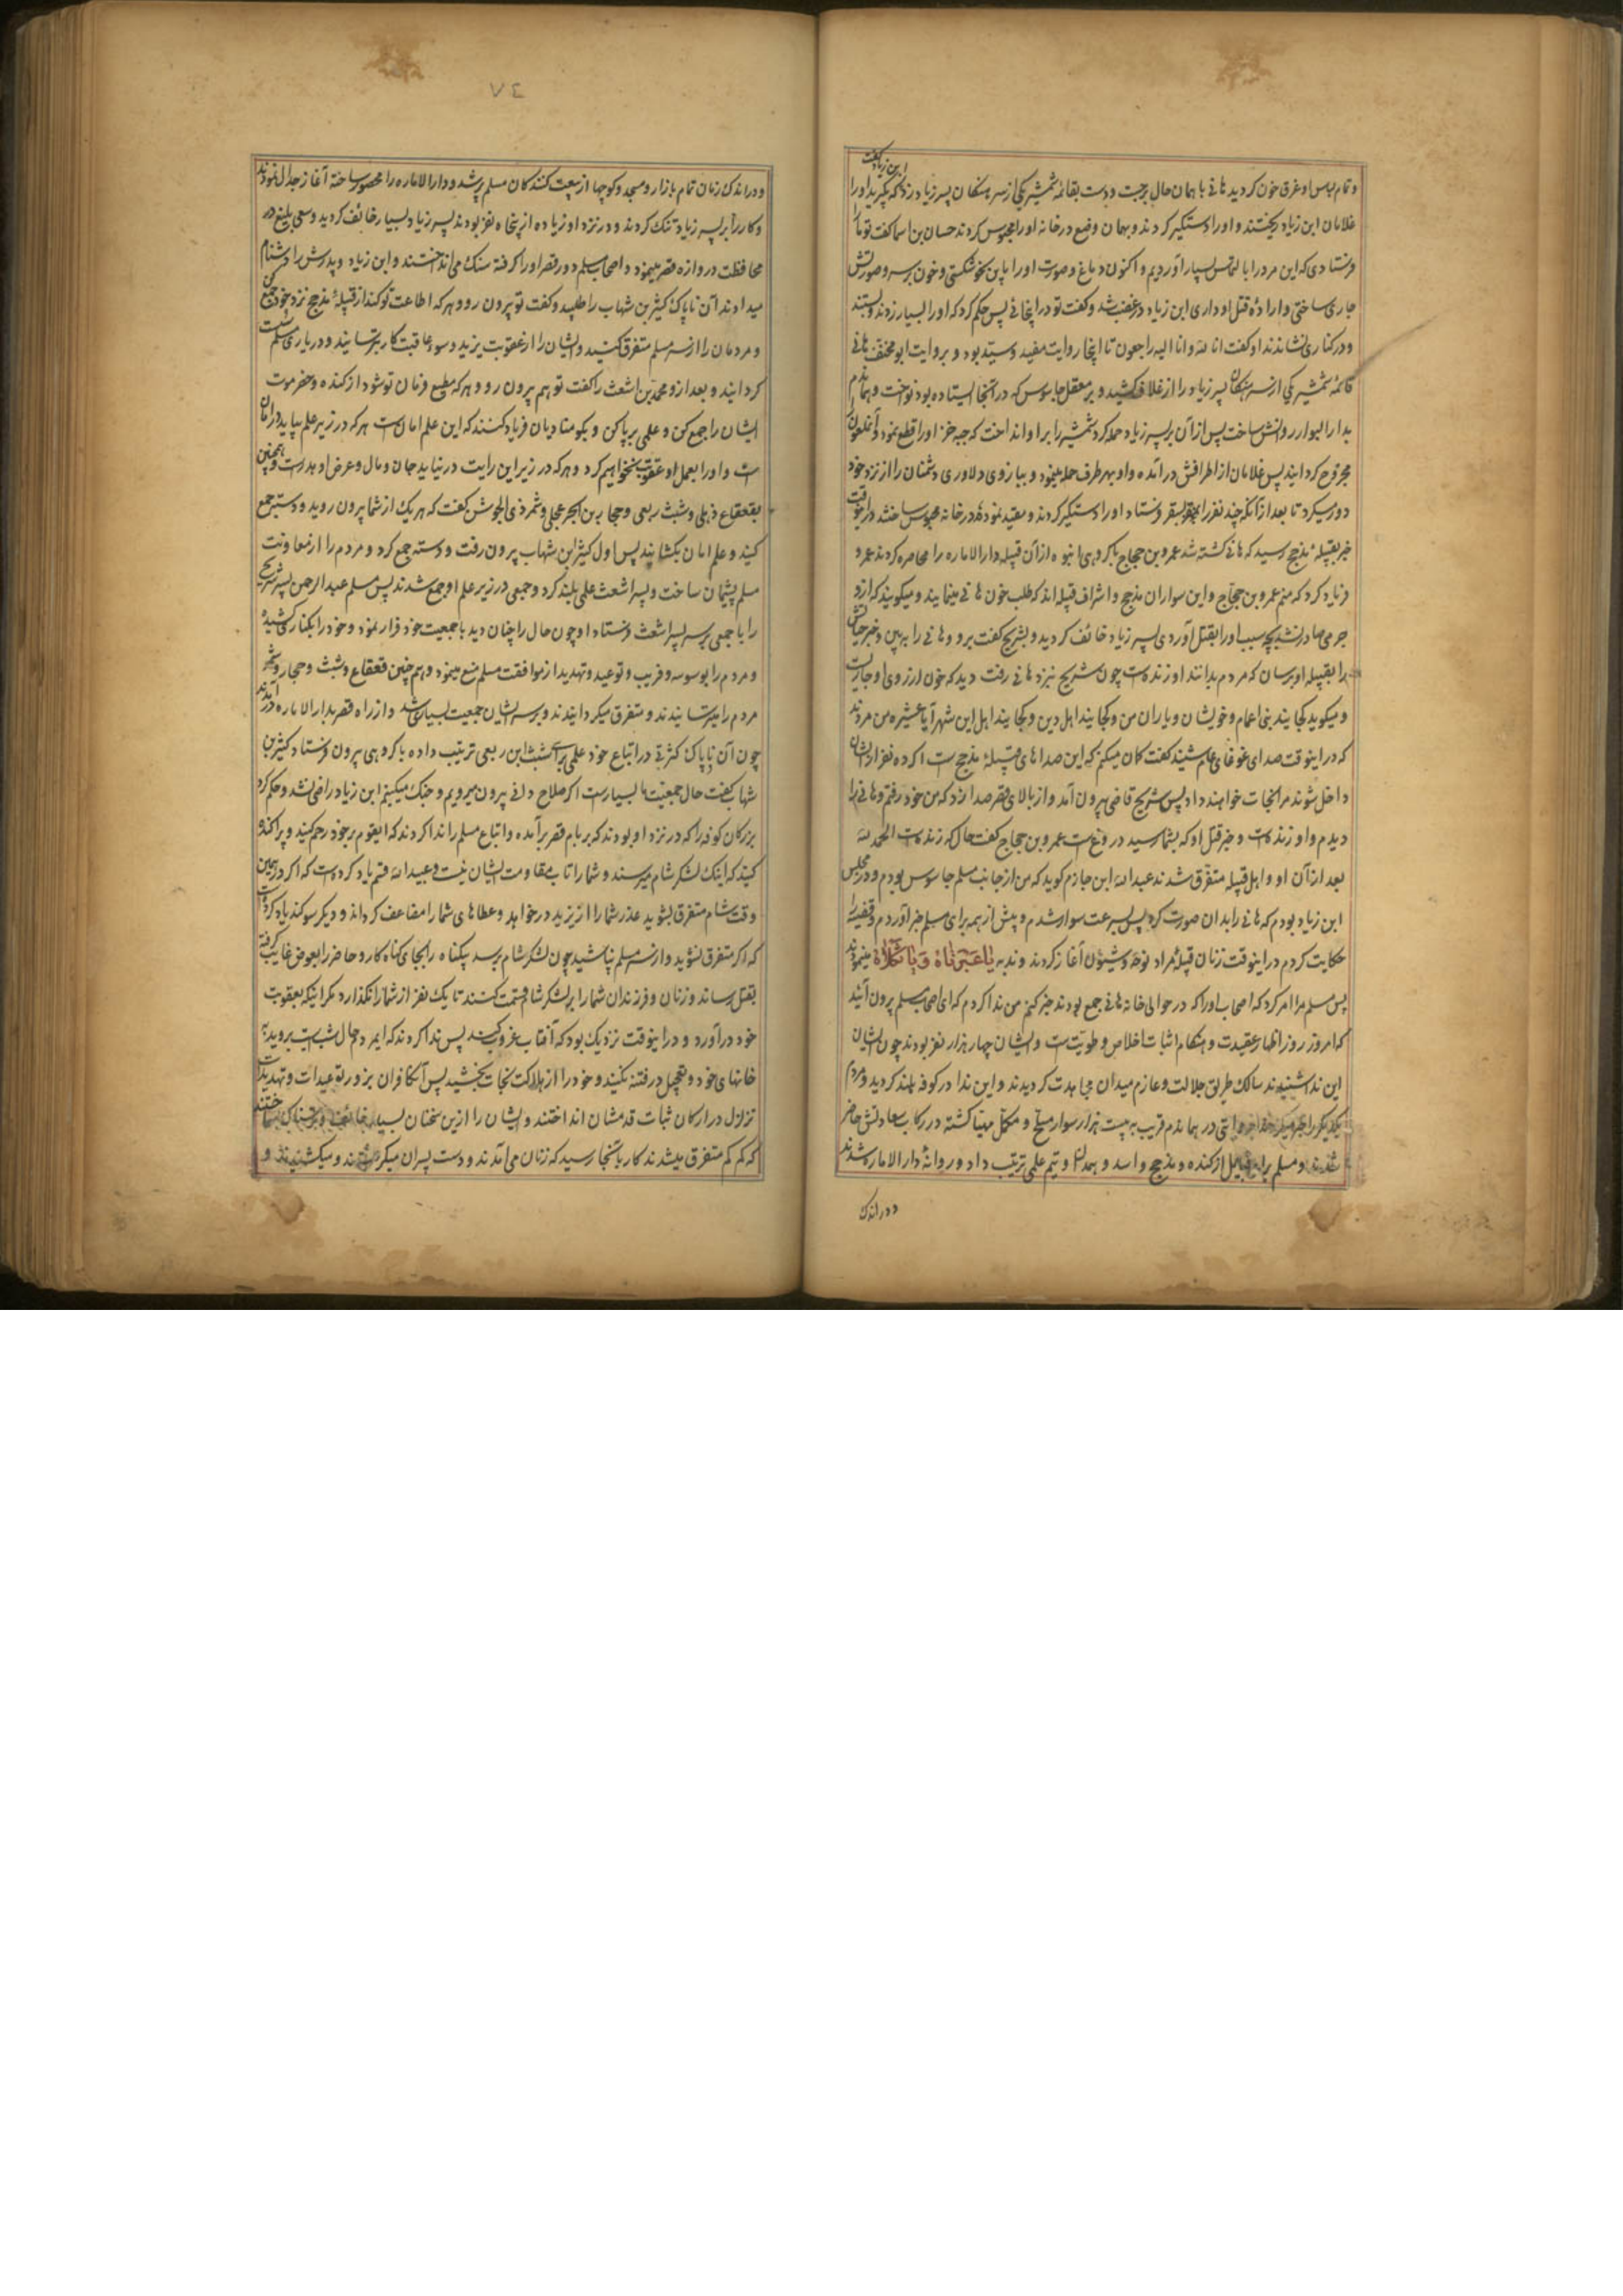 ابن زیاد گفت
و تمام لباس او غرق خون کردید هانی با همان حال برجست و دست بقائمه شمشیر یکی از سرهنکان پسر زیاد زد که بکیرید او را
غلامان ابن زیاد ریختند و او را دستکیر کردند و بهمان وضع در خانه او را محبوس کردند حسان بن اسما کفت تو ما را
فرستادی که این مرد را با لتماس بسیار آوردیم و اکنون دماغ و صورت او را باین نحو شکستی و خون بسر و صورتش
جاری ساختی و اراده قتل او داری ابن زیاد در غضب شد و کفت تو در اینجائی پس حکم کرد که او را بسیار زدند و بستند
و در کناری نشاندند او کفت انا لله و انا الیه راجعون تا اینجا روایت مفید و سید بود و بروایت ابو مخنف هانی
قائمه شمشیر یکی از سرهنکان پسر زیاد را از غلاف کشید و بر معقل جاسوس که در آنجا ایستاده بود نواخت و هماندم
بدار البوار روانش ساخت پس از آن بر پسر زیاد حمله کرد شمشیر را بر او انداخت که جبه خز او را قطع نمود و آنملعون را
مجروح کردانید پس غلامان از اطرافش در آمده و او بهر طرف حمله مینمود و ببازوی دلاوری دشمنان را از نزد خود
دور میکرد تا بعد از آنکه چند نفر را بسقر فرستاد او را دستکیر کردند و مقید نموده در خانه محبوس ساختند در اینوقت
خبر بقبیله مذحج رسید که هانی کشته شد عمرو بن حجاج با کروهی انبوه از آن قبیله دار الاماره را محاصره کردند عمرو
فریاد کرد که منم عمرو بن حجاج و این سواران مذحج و اشراف قبیله اند که طلب خون هانی مینمایند و میکویند که از او
جرمی صادر نشد بچه سبب او را بقتل آوردی پسر زیاد خائف کردید و بشریح کفت برو و هانی را ببین و خبر حیاتش
را بقبیله او برسان که مردم بدانند او زنده است چون شریح نیز نزد هانی رفت دید که خون از روی او جاریست
و میکوید کجایند بنی اعمام و خویشان و یاران من و کجایند اهل دین و کجایند اهل این شهر آیا عشیره من مردند
که در اینوقت صدای غوغای عام شنید کفت کمان میکنم که این صداهای قبیله مذحج است اکر ده نفر از ایشان
داخل شوند مرا نجات خواهند داد پس شریح قاضی بیرون آمد و از بالای قصر صدا زد که من خود رفتم و هانی را
دیدم و او زنده است و خبر قتل او که بشما رسید دروغ است عمرو بن حجاج کفت حال که زنده است الحمد لله
بعد از آن او و اهل قبیله متفرق شدند عبد الله ابن حازم کوید که من از جانب مسلم جاسوس بودم و در مجلس
ابن زیاد بودم که هانی را بدان صورت کرد پس بسرعت سوار شدم و پیش از همه برای مسلم خبر آوردم و قضیه را
حکایت کردم در اینوقت زنان قبیله مراد نوحه و شیون آغاز کردند و ندبه یا عبرتاه و یا ثکلاه مینمودند
پس مسلم مرا امر کرد که اصحاب او را که در حوالی خانه هانی جمع بودند خبر کنم من ندا کردم که ای اصحاب مسلم بیرون آئید
که امروز روز اظهار عقیدت و هنکام اثبات اخلاص و طویت است و ایشان چهار هزار نفر بودند چون ایشان
این ندا شنیدند سالک طریق جلالت و عازم میدان مجاهدت کردیدند و این ندا در کوفه بلند کردید و مردم
یکدیکر را خبر میکردند در هماندم قریب به بیست هزار سوار مسلح و مکمل مهیا کشته در رکاب سعادتش حاضر
شدند و مسلم برای قبایل از کنده و مذحج و اسد و همدان و تمیم علمی ترتیب داد و روانه دار الاماره شدند
و در اندک
٧٤
و در اندک زمان تمام بازار و مسجد و کوچها از بیعت کنندکان مسلم پر شد و دار الاماره را محصور ساخته آغاز جدال نمودند
و کار را بر پسر زیاد تنک کردند و در نزد او زیاده از پنجاه نفر بودند پسر زیاد بسیار خائف کردید و سعی بلیغ در
محافظت دروازه قصر مینمود و اصحاب مسلم دور قصر او را کرفته سنک می انداختند و ابن زیاد و پدرش را دشنام
میدادند آن ناپاک کثیر بن شهاب را طلبید و کفت تو بیرون رو و هر که اطاعت تو کند از قبیله مذحج نزد خود جمع کن
و مردمان را از سر مسلم متفرق کنید و ایشان را از عقوبت یزید و سوء عاقبت کار بترسانید و در یاری مسلم سست
کردانید و بعد از او محمد بن اشعث را کفت تو هم بیرون رو و هر که مطیع فرمان تو شود از کنده و حضرموت
ایشان را جمع کن و علمی بر پا کن و بکو منادیان فریاد کنند که این علم امان است هر که در زیر علم بیاید در امان
است و او را بعمل او عقوبت نخواهیم کرد و هر که در زیر این رایت در نیاید جان و مال و عرض او هدر است و همچنین
بقعقاع ذهلی و شبث ربعی و حجار بن ابجر عجلی و شمر ذی الجوشن کفت که هر یک از شما بیرون روید و دسته جمع
کنید و علم امان بکشانید پس اول کثیر ابن شهاب بیرون رفت و دسته جمع کرد و مردم را از معاونت
مسلم پشیمان ساخت و پسر اشعث علمی بلند کرد و جمعی در زیر علم او جمع شدند پس مسلم عبد الرحمن پسر شریح
را با جمعی بر سر پسر اشعث فرستاد او چون حال را چنان دید با جمعیت خود فرار نمود و خود را بکناری کشید
و مردم را بوسوسه و فریب و توعید و تهدید از موافقت مسلم منع مینمود و هم چنین قعقاع و شبث و حجار و شمر
مردم را میترسانیدند و متفرق میکردانیدند و بر سر ایشان جمعیت بسیار شد و از راه قصر بدار الاماره در آمدند
چون آن ناپاک کثرتی در اتباع خود علمی برای شبث ابن ربعی ترتیب داده با کروهی بیرون فرستاد کثیر بن
شهاب کفت حال جمعیت ما بسیار است اکر صلاح دانی بیرون میرویم و جنک میکنیم ابن زیاد راضی نشد و حکم کرد
بزرکان کوفه را که در نزد او بودند که بر بام قصر برآمده و اتباع مسلم را ندا کردند که ایقوم بر خود رحم کنید و پراکنده
کنید که اینک لشکر شام میرسند و شما را تاب مقاومت ایشان نیست و عبید الله قسم یاد کرده است که اکر در همین
وقت شام متفرق بشوید عذر شما را از یزید درخواهد و عطاهای شما را مضاعف کرداند و دیکر سوکند یاد کرده است
که اکر متفرق نشوید و از سر مسلم نپاشید چون لشکر شام برسد بیکناه را بجای کناه کار و حاضر را بعوض غایب کرفته
بقتل رساند و زنان و فرزندان شما را بر لشکر شام قسمت کنند تا یک نفر از شما را نکذارد مکر اینکه بعقوبت
خود در آورد و در اینوقت نزدیک بود که آفتاب غروب کند پس ندا کردند که ایمردم حال شب است بروید به
خانهای خود و تعجیل در فتنه نکنید و خود را از هلاکت نجات بخشید پس آن کافران بزور توعیدات و تهدیدات
تزلزل در ارکان ثبات قدمشان انداختند و ایشان را ازین سخنان بسیار خائف و ساختند
که کم کم متفرق میشدند کار بآنجا رسید که زنان می آمدند و دست پسران میکرفتند و میکشیدند و